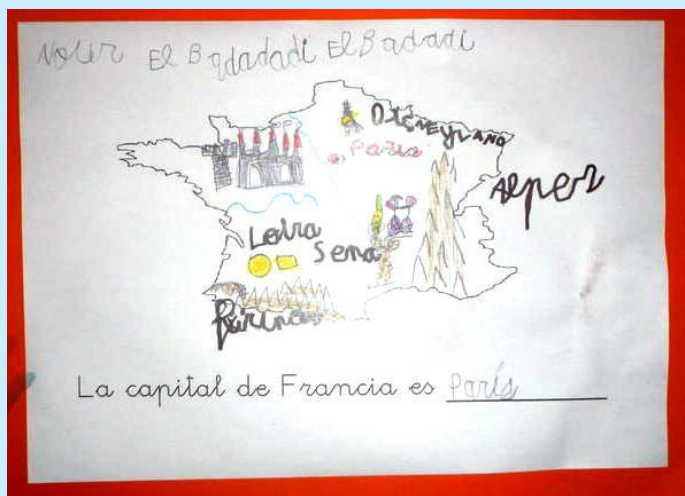 Nour El Badadadi El Badadi
DISNEYLAND
Paris
Alpes
Leira
Sena
Pirineos
La capital de Francia es París